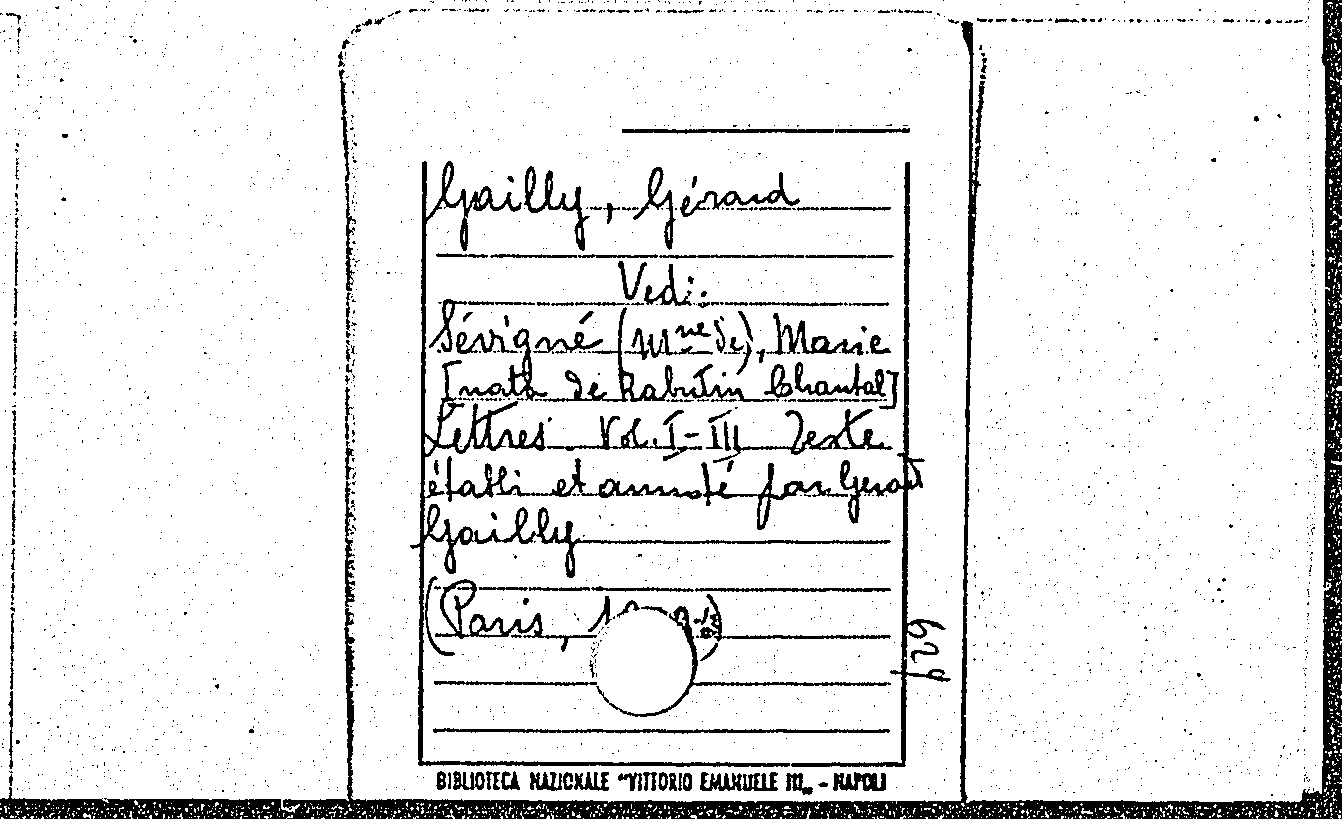 Gailly, Gérard
Vedi:
Sévigné (Mme de), Marie
[nata de Rabutin Chantal]
Lettres Vol. I-III Texte
établi et annoté par Gerard
Gailly
(Paris,
629
BIBLIOTECA NAZIONALE "VITTORIO EMANUELE III„ - NAPOLI